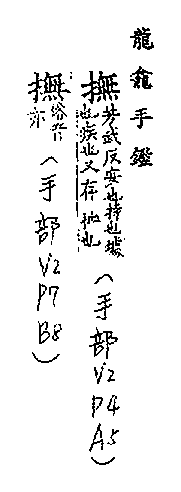 龍龕手鑑
撫芳武反安也持也據
也疾也又存恤也(手部V2P4A5)
撫俗音
亦(手部V2P7B8)